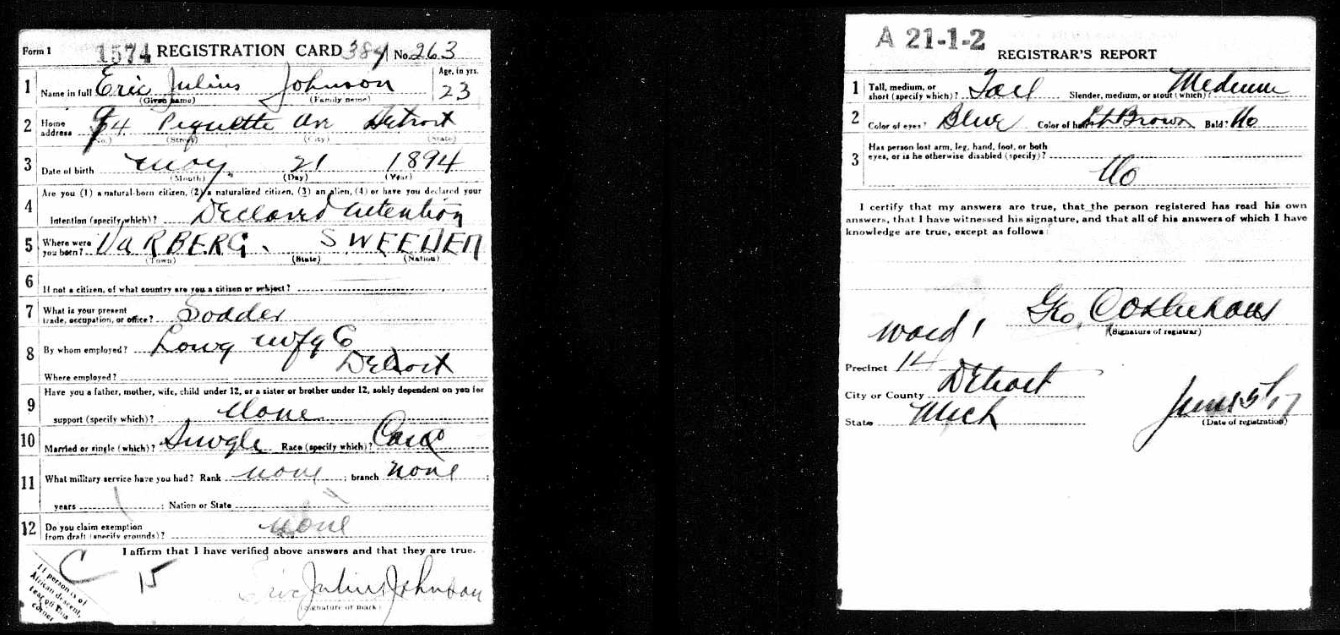 Form 1 1574 REGISTRATION CARD 384 No. 263
1 Name in full Eric Julius Johnson Age, in yrs. 23
(Given name) (Family name)
2 Home address 94 Piquette Av Detroit
(No.) (Street) (City) (State)
3 Date of birth May 21 1894
(Month) (Day) (Year)
4 Are you (1) a natural-born citizen, (2) a naturalized citizen, (3) an alien, (4) or have you declared your
intention (specify which)? Declared intention
5 Where were you born? VARBERG. SWEEDEN
(Town) (State) (Nation)
6 If not a citizen, of what country are you a citizen or subject?
7 What is your present trade, occupation, or office? Sodder
8 By whom employed? Long Mfg Co
Where employed? Detroit
9 Have you a father, mother, wife, child under 12, or a sister or brother under 12, solely dependent on you for
support (specify which)? None
10 Married or single (which)? Single Race (specify which)? Cauc
11 What military service have you had? Rank none ; branch none
years ; Nation or State
12 Do you claim exemption from draft (specify grounds)? none
I affirm that I have verified above answers and that they are true.
C 15
If person is of
African descent,
tear off this
corner
Eric Julius Johnson
(Signature or mark)
A 21-1-2
REGISTRAR'S REPORT
1 Tall, medium, or short (specify which)? Tall Slender, medium, or stout (which)? Medium
2 Color of eyes? Blue Color of hair? Lt Brown Bald? No
3 Has person lost arm, leg, hand, foot, or both
eyes, or is he otherwise disabled (specify)?
No
I certify that my answers are true, that the person registered has read his own
answers, that I have witnessed his signature, and that all of his answers of which I have
knowledge are true, except as follows:
Geo.
(Signature of registrar)
Ward 1
Precinct 14
City or County Detroit
State Mich June 5th 17
(Date of registration)